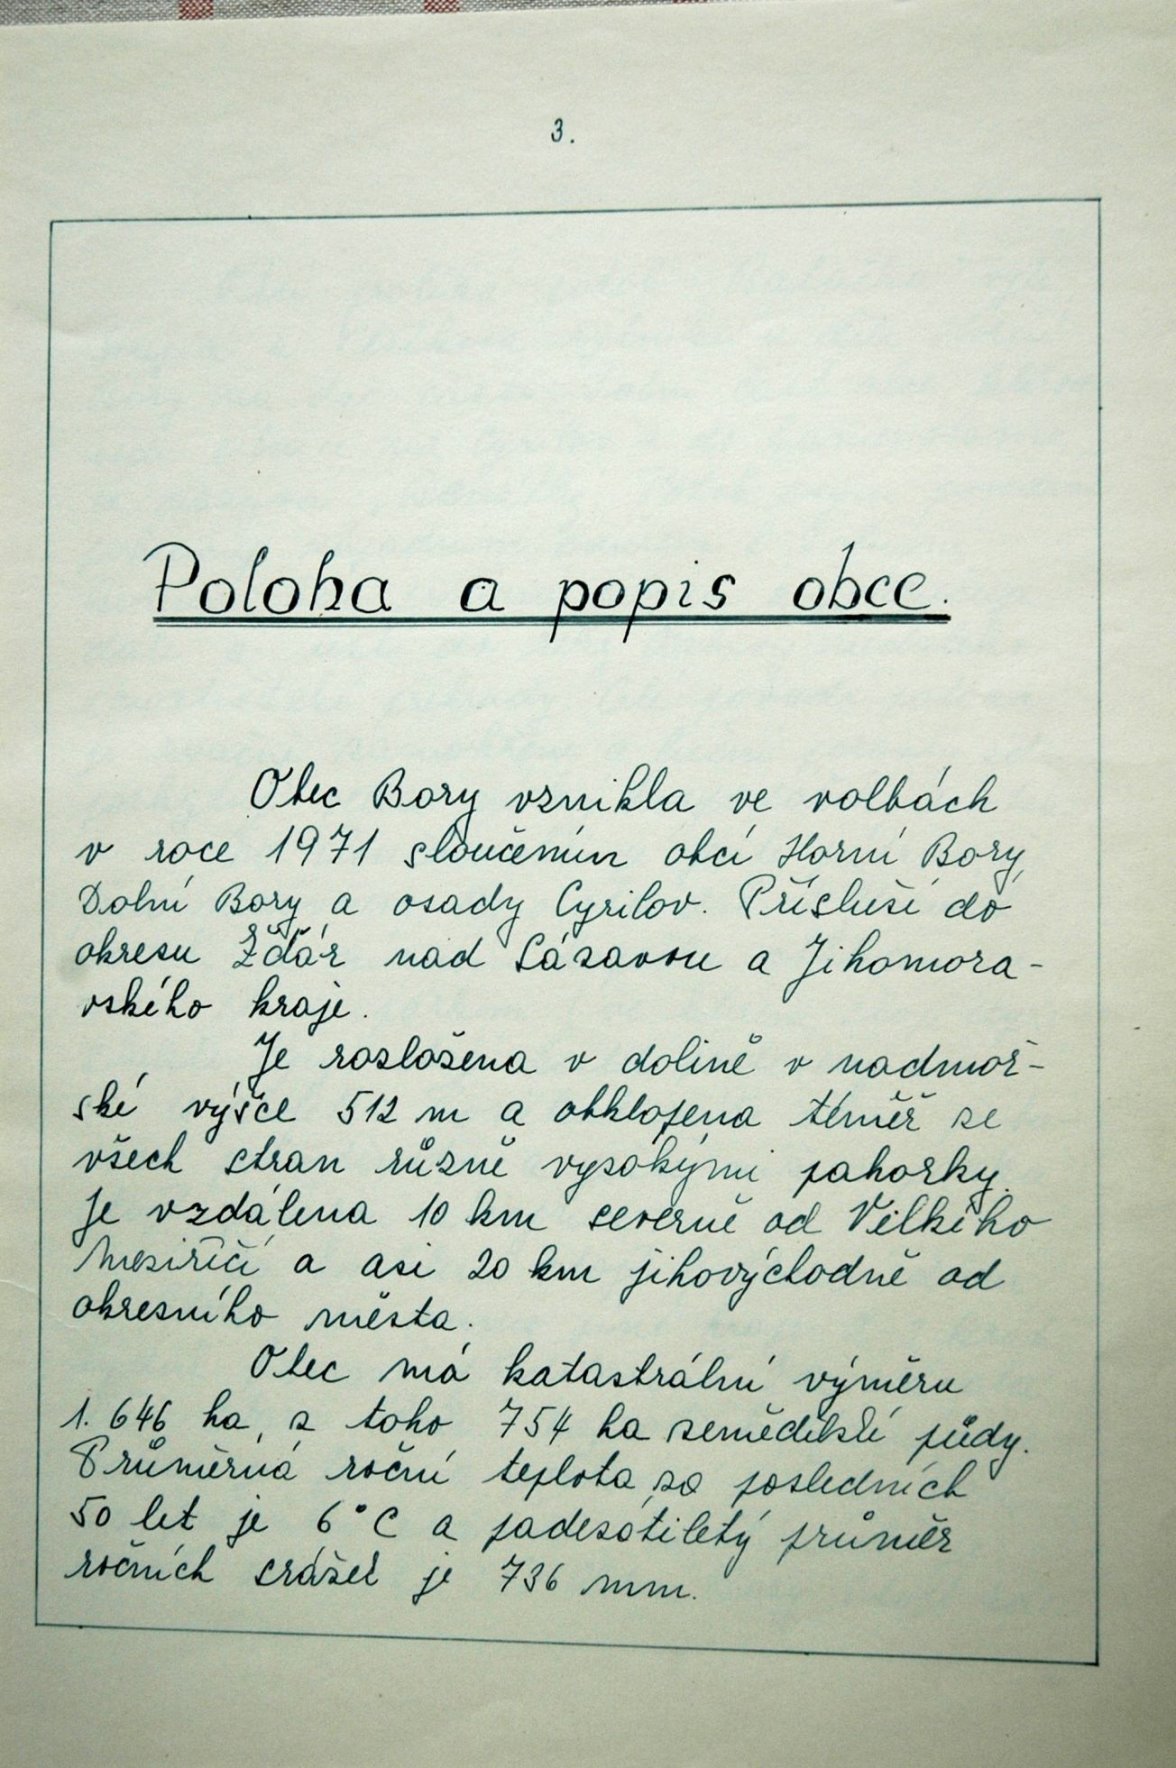 3.
Poloha a popis obce.
Obec Bory vznikla ve volbách
v roce 1971 sloučením obcí Horní Bory,
Dolní Bory a osady Cyrilov. Přísluší do
okresu Žďár nad Sázavou a Jihomora-
vského kraje.
Je rozložena v dolině v nadmoř-
ské výšce 512 m a obklopena téměř ze
všech stran různě vysokými pahorky.
Je vzdálena 10 km severně od Velkého
Meziříčí a asi 20 km jihovýchodně od
okresního města.
Obec má katastrální výměru
1.646 ha, z toho 754 ha zemědělské půdy.
Průměrná roční teplota za posledních
50 let je 6°C a padesátiletý průměr
ročních srážek je 736 mm.